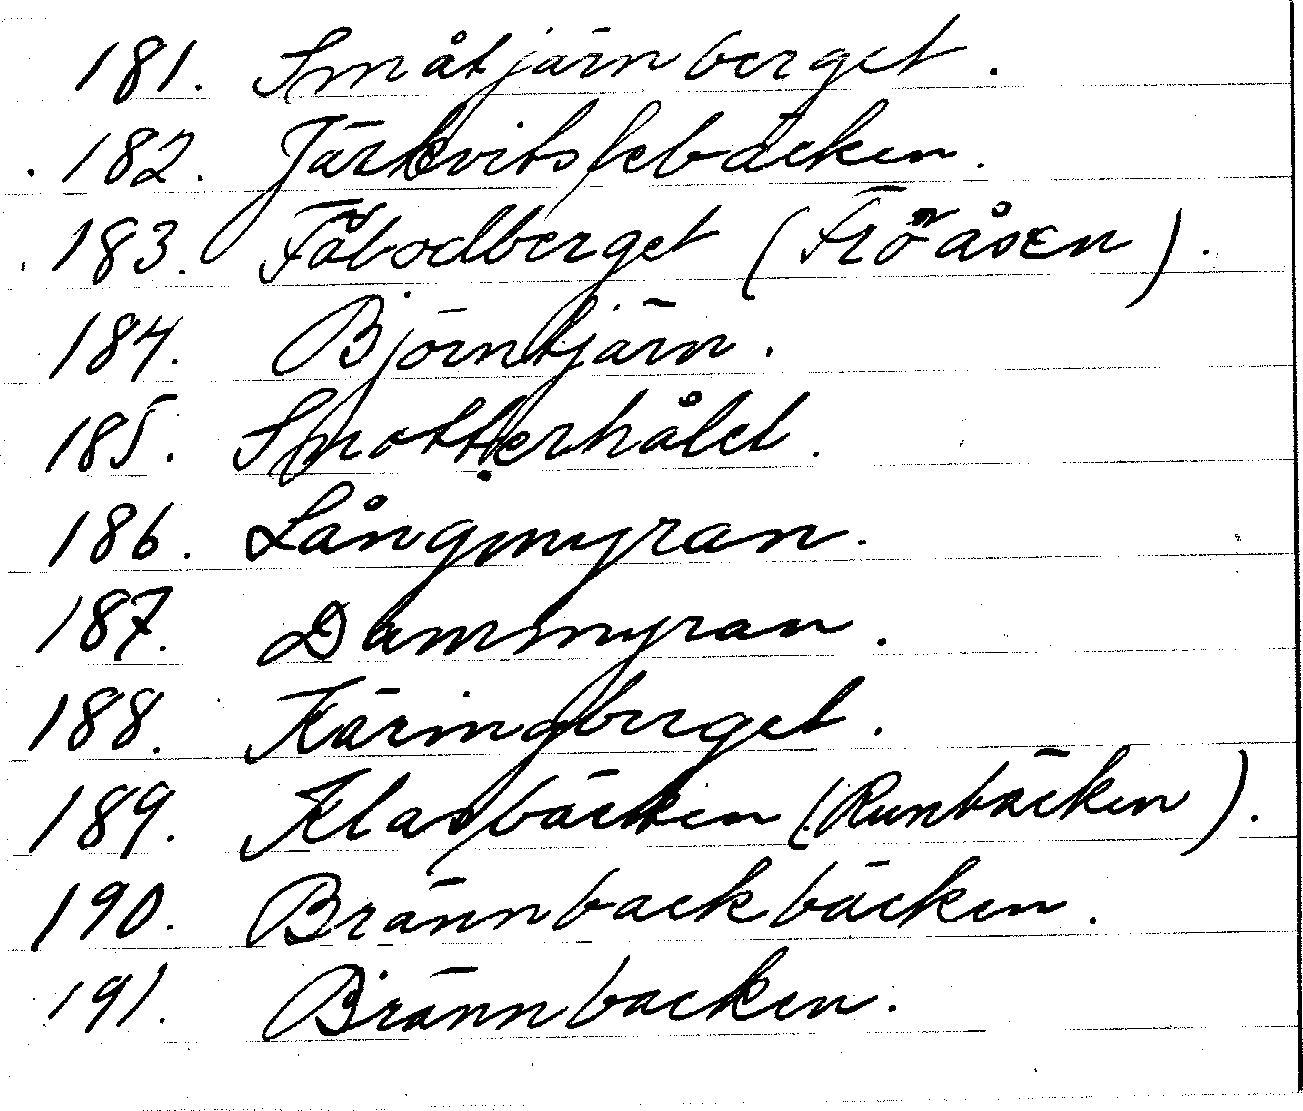 181. Småtjärnberget.
182. Järkvitslebäcken.
183. Fäbodberget (Fröåsen).
184. Björntjärn.
185. Smotterhålet.
186. Långmyran.
187. Dammyran.
188. Käringberget.
189. Klasbäcken (Runbäcken).
190. Brännbackbäcken.
191. Brännbacken.